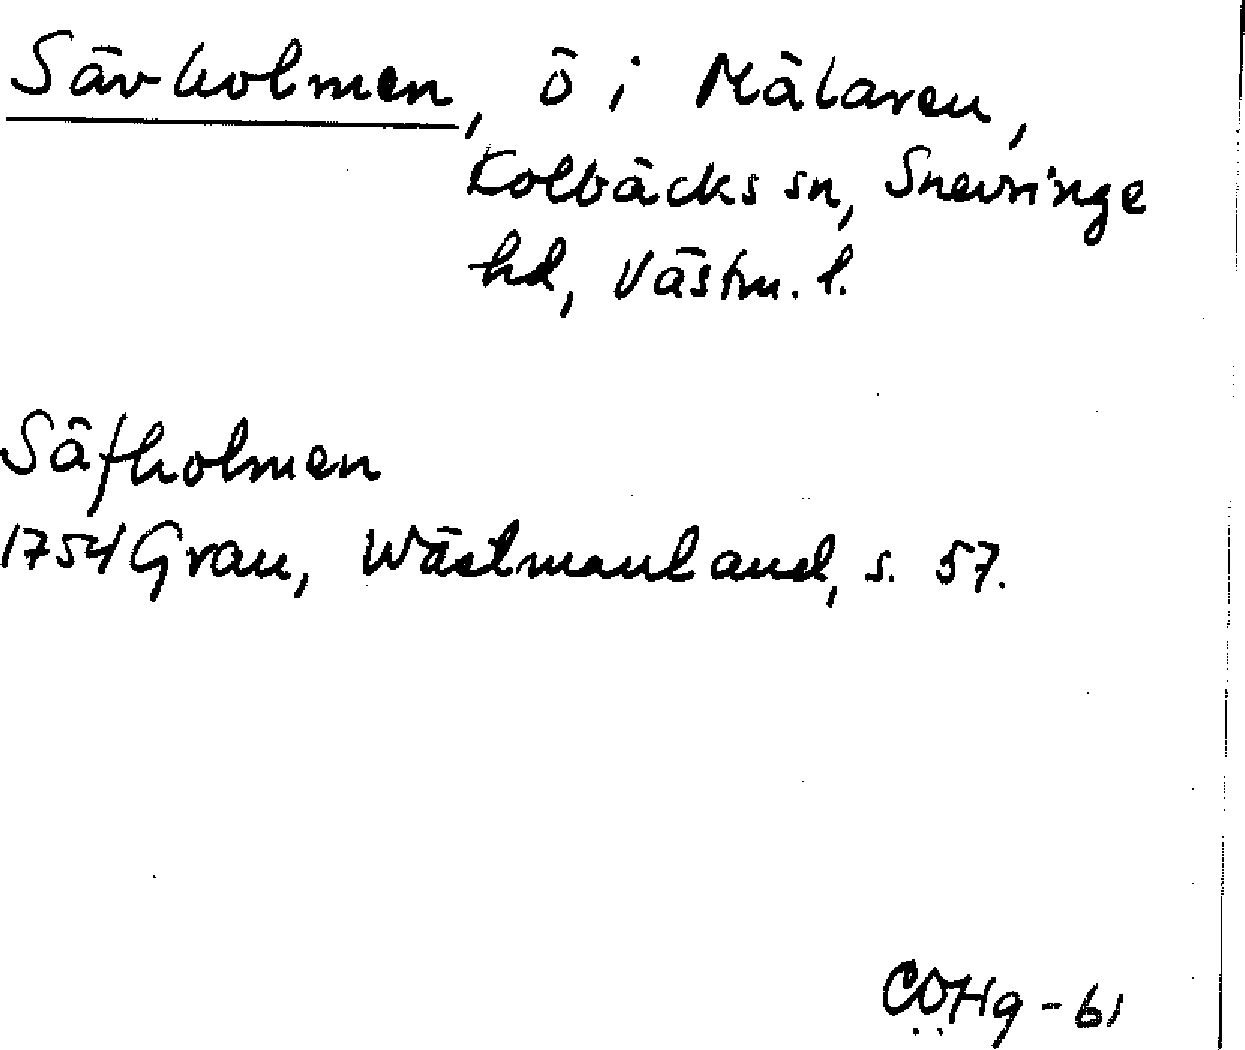 Sävholmen, ö i Mälaren,
Kolbäcks sn, Snevringe
hd, Västm. l.
Säfholmen
1754 Grau, Wästmanland, s. 57.
CÖHg - 61